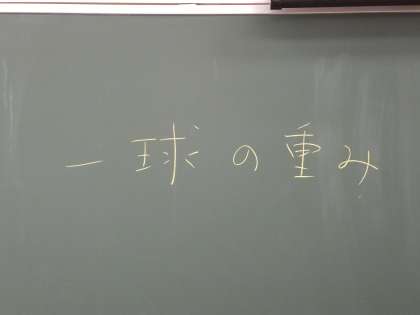 一球の重み